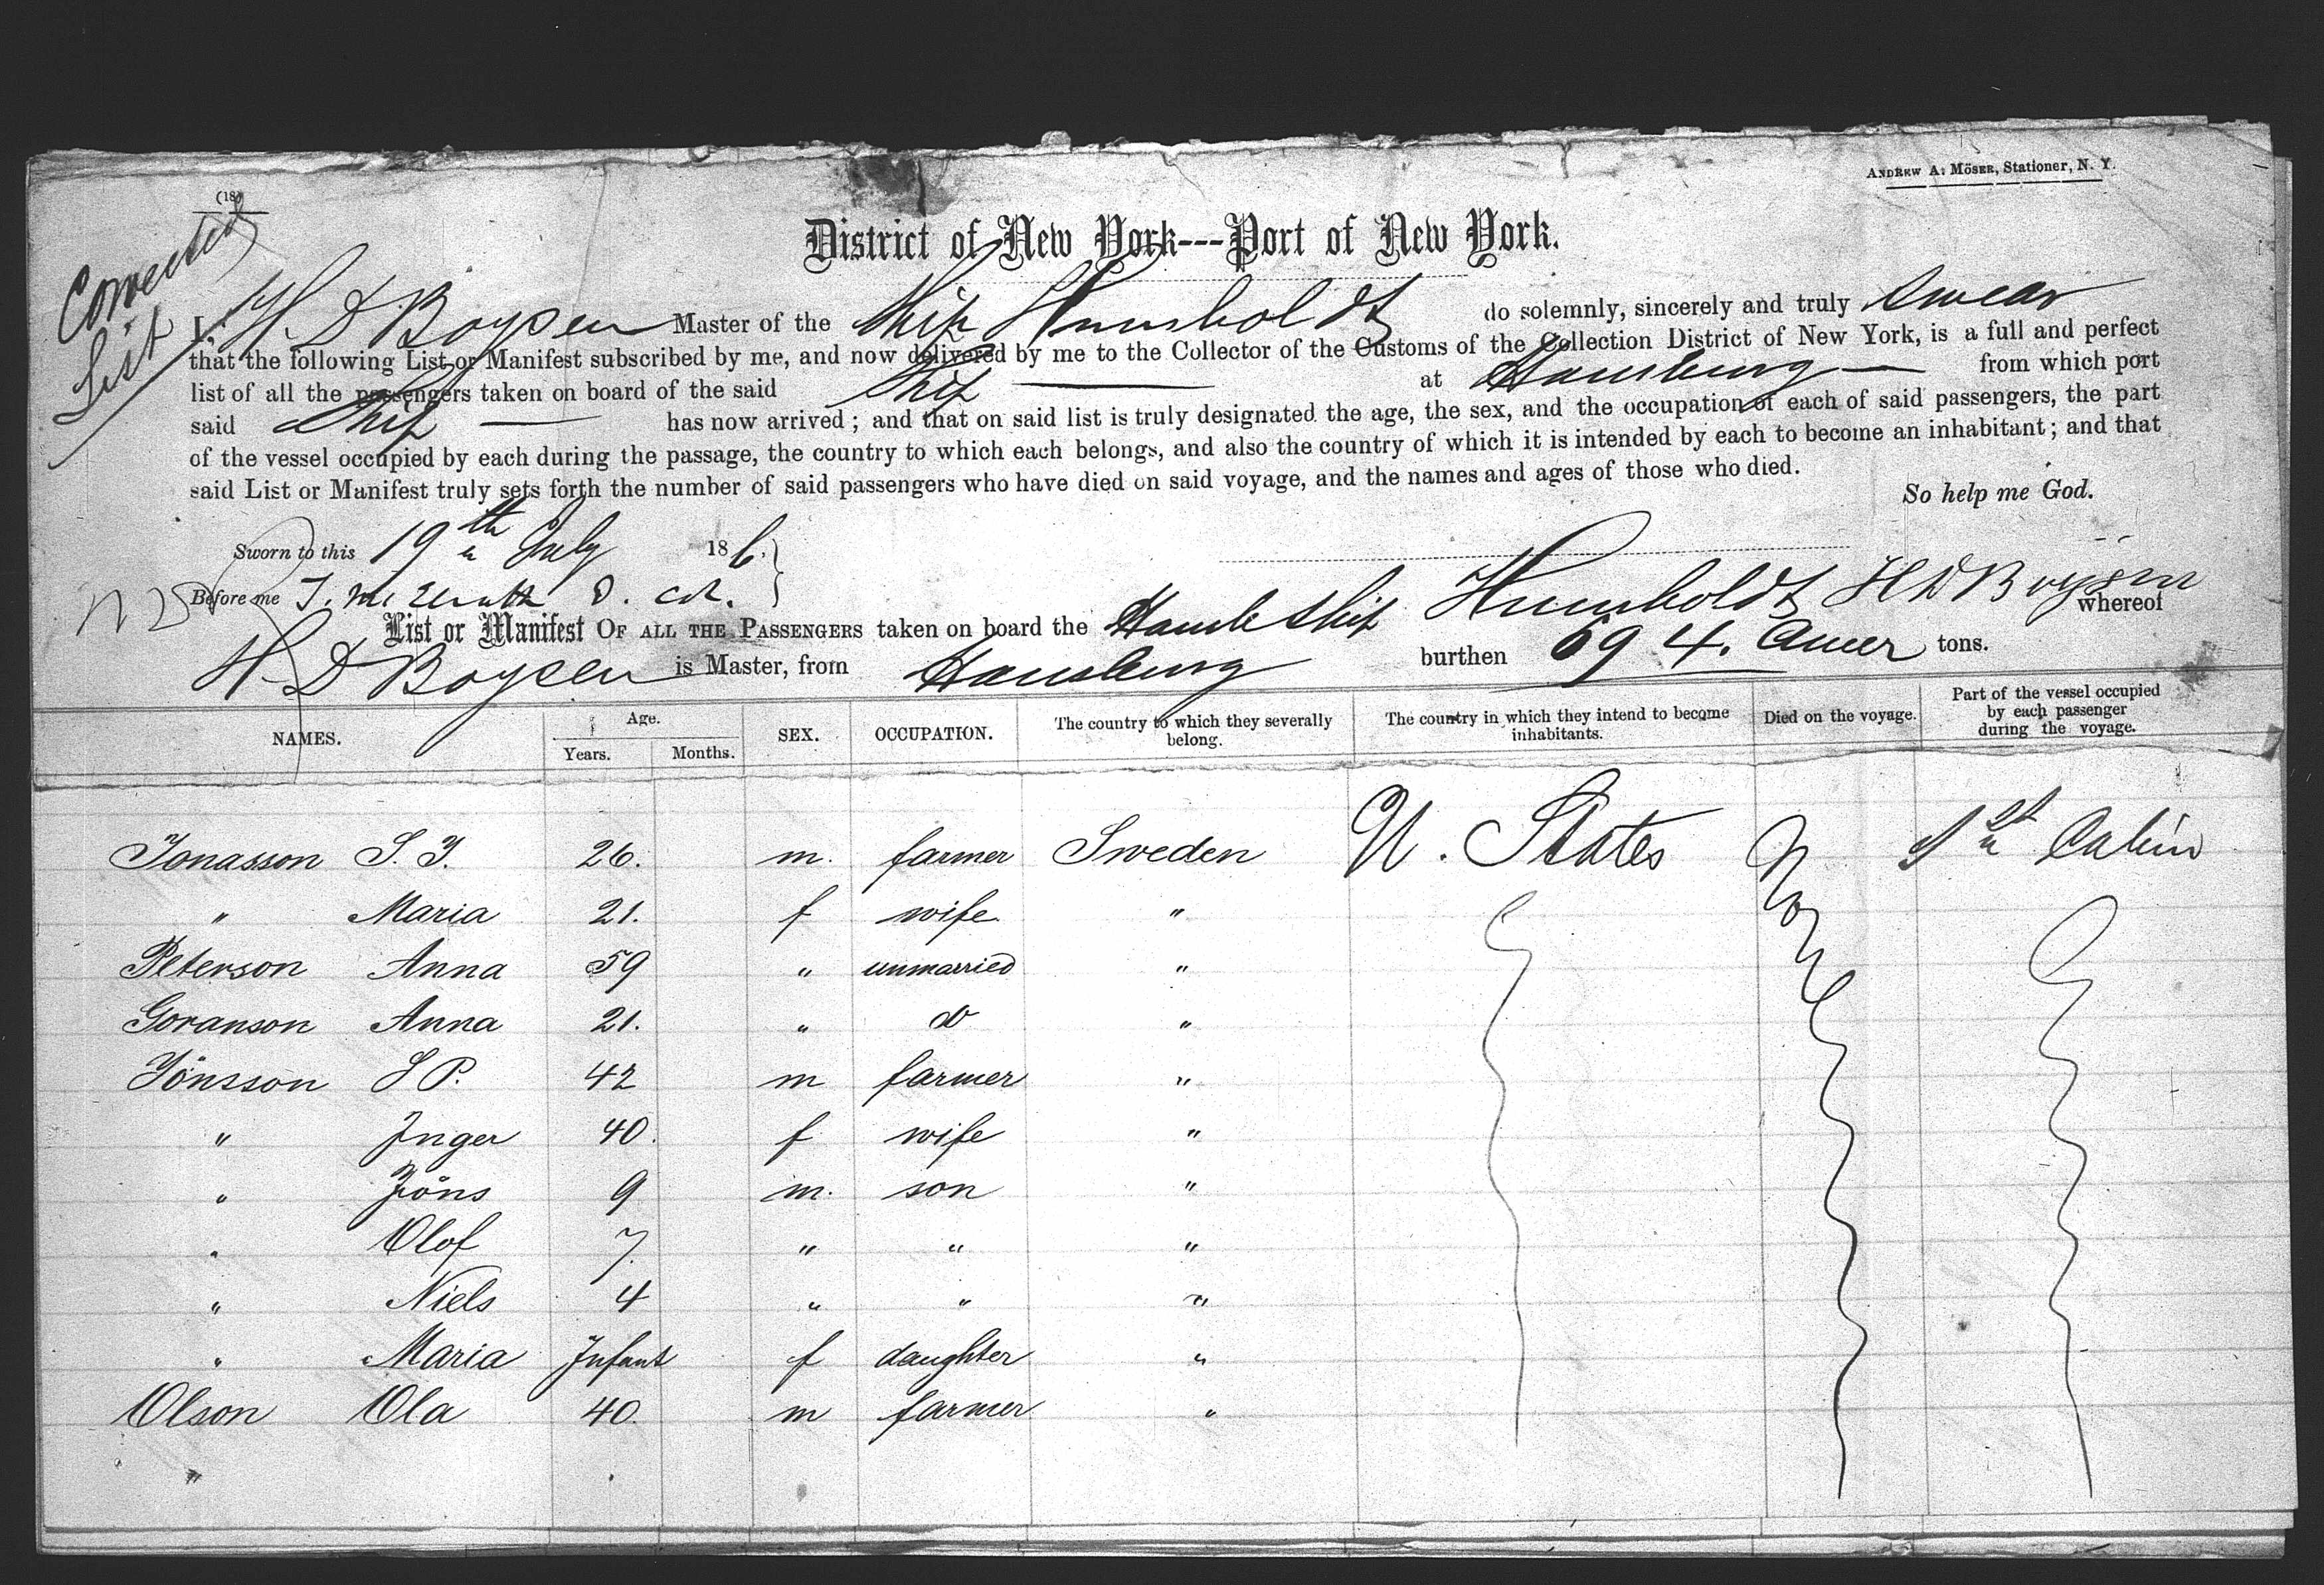 ANDREW A. MÖSER, Stationer, N. Y.
(18)
Corrected
List
District of New York---Port of New York.
I, H D Boysen Master of the Ship Humboldt do solemnly, sincerely and truly swear
that the following List or Manifest subscribed by me, and now delivered by me to the Collector of the Customs of the Collection District of New York, is a full and perfect
list of all the passengers taken on board of the said Ship at Hamburg from which port
said Ship has now arrived; and that on said list is truly designated the age, the sex, and the occupation of each of said passengers, the part
of the vessel occupied by each during the passage, the country to which each belongs, and also the country of which it is intended by each to become an inhabitant; and that
said List or Manifest truly sets forth the number of said passengers who have died on said voyage, and the names and ages of those who died.
So help me God.
Sworn to this 19th July 186.
Before me
H D Boysen
List or Manifest OF ALL THE PASSENGERS taken on board the Hamb Ship Humboldt whereof
H D Boysen is Master, from Hamburg burthen 694. Amer tons.
NAMES. Age. Years. Months. SEX. OCCUPATION. The country to which they severally belong. The country in which they intend to become inhabitants. Died on the voyage. Part of the vessel occupied by each passenger during the voyage.
Jonasson S. J. 26. m. farmer Sweden U. States None 1st Cabin
" Maria 21. f wife "
Peterson Anna 59 " unmarried "
Goranson Anna 21. " do "
Jönsson S P. 42 m farmer "
" Inger 40. f wife "
" Jöns 9 m. son "
" Olof 7. " " "
" Niels 4 " " "
" Maria Infant f daughter "
Olson Ola 40. m farmer "
"